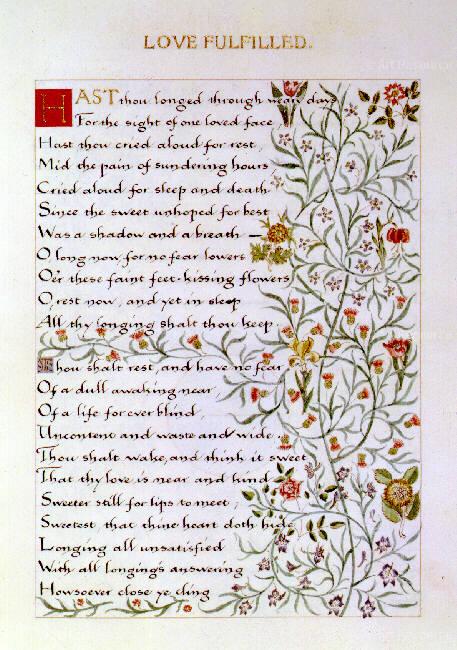 LOVE FULFILLED.
HAST thou longed through weary days
For the sight of one loved face
Hast thou cried aloud for rest,
Mid the pain of sundering hours
Cried aloud for sleep and death
Since the sweet unhoped for best
Was a shadow and a breath —
O long now for no fear lowers
O'er these faint feet-kissing flowers
O, rest now, and yet in sleep
All thy longing shalt thou keep.
Thou shalt rest, and have no fear
Of a dull awaking near,
Of a life for ever blind,
Uncontent and waste and wide.
Thou shalt wake, and think it sweet
That thy love is near and kind
Sweeter still for lips to meet;
Sweetest that thine heart doth hide
Longing all unsatisfied
With all longing's answering
Howsoever close ye cling